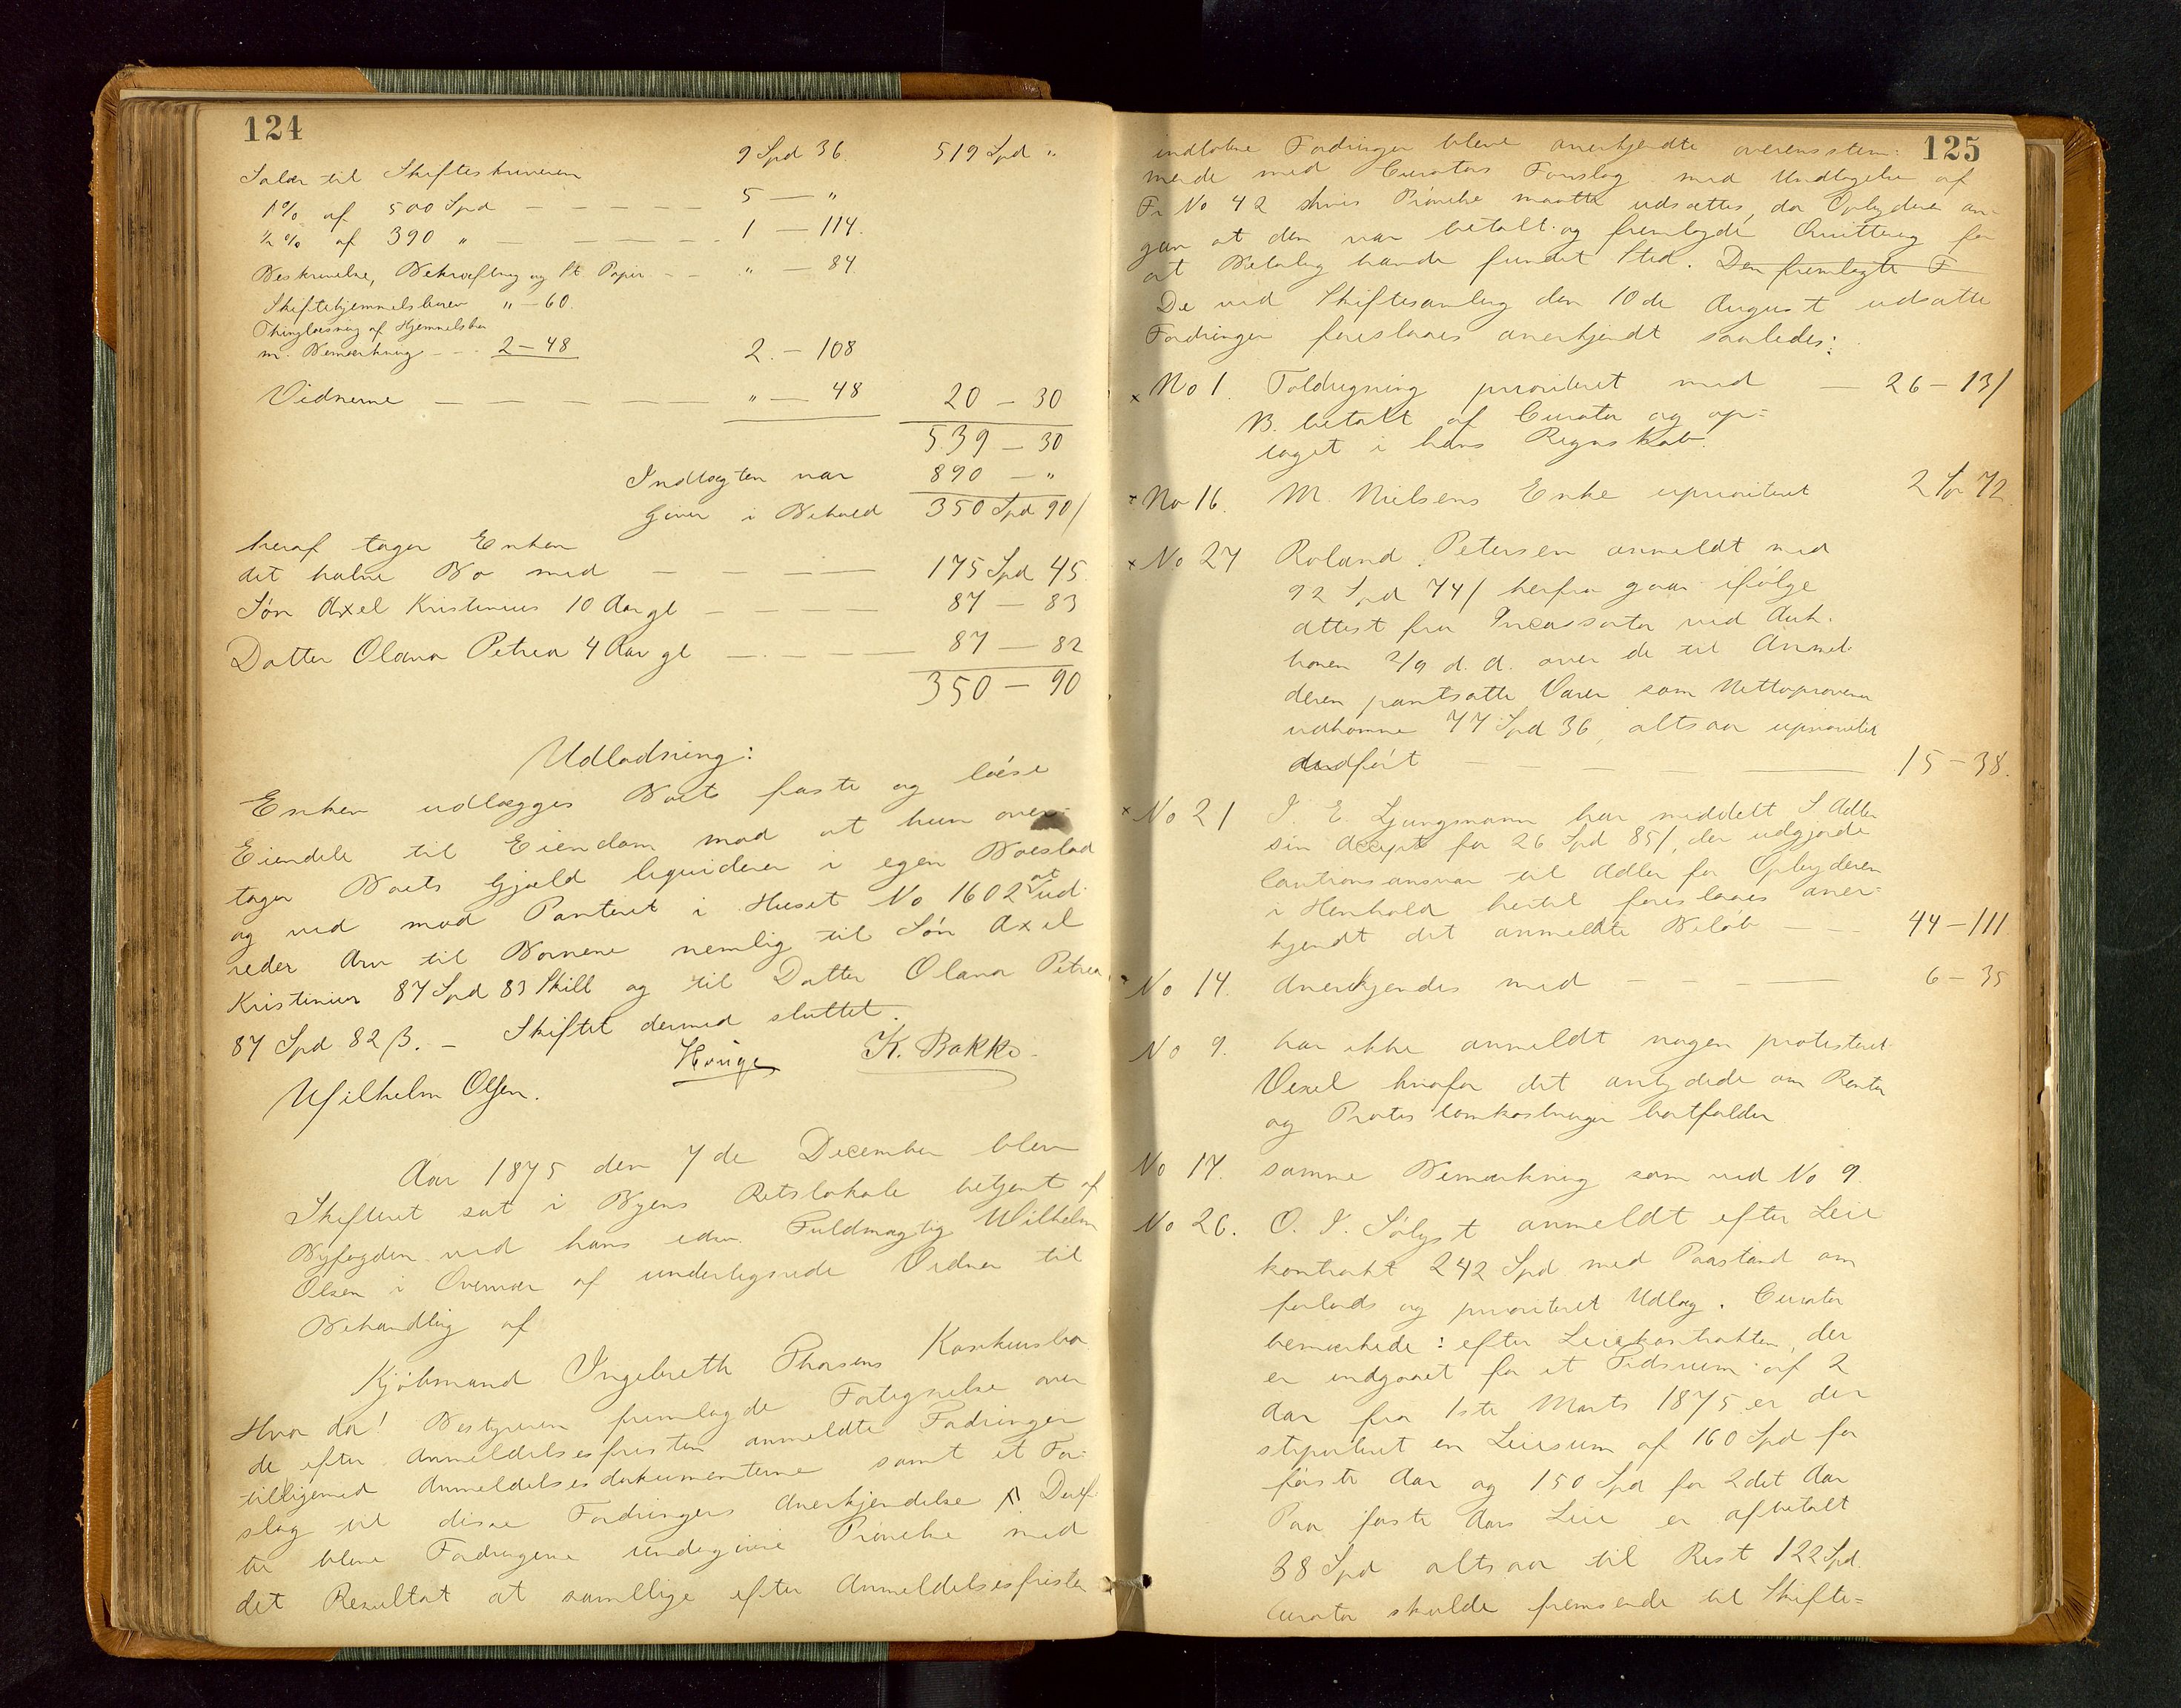 124
9 Spd 36. 519 Spd "
Salær til Skifteskriveren
1% af 500 Spd — — — — — 5 — "
½% af 390 " — — — — — 1 — 114.
Beskrivelse, Bekræftning og St. Papir — — " — 84.
Skiftehjemmelsbrev " — 60.
Thinglæsning af Hjemmelsbr
m. Bemærkning — — 2 — 48 2. — 108
Vidnerne — — — — — — " — 48 20 — 30
539 — 30
Indtægten var 890 — "
Giver i Behold 350 Spd 90/
heraf tager Enken
det halve Bo med — — — — 175 Spd 45.
Søn Axel Kristinius 10 Aar gl — — — — 87 — 83
Datter Olava Petrea 4 Aar gl — — — — 87 — 82
350 — 90
Udlodning:
Enken udlægges Boets faste og løse
Eiendele til Eiendom mod at hun over-
tager Boets Gjæld liquiderer i egen Boeslod
og ved mod Panteret i Huset No 1602 at ud-
reder Arv til Børnene nemlig til Søn Axel
Kristinius 87 Spd 83 Skill og til Datter Olava Petrea
87 Spd 82 β. — Skiftet dermed sluttet.
Wilhelm Olsen. Houge K. Bakke
Aar 1875 den 7de December blev
Skifteret sat i Byens Retslokale betjent af
Byfogden ved hans edsv. Fuldmægtig Wilhelm
Olsen i Overvær af undertegnede Vidner til
Behandling af
Kjøbmand Ingebreth Thorsens Konkursbo
Hvor da! Bestyreren fremlagde Fortegnelse over
de efter Anmeldelsesfristen anmeldte Fordringer
tilligemed Anmeldelsesdokumenterne samt et For-
slag til disse Fordringers Anerkjendelse Deref-
ter bleve Fordringerne undergivne Prøvelse med
det Resultat at samtlige efter Anmeldelsesfristen
125
indkomne Fordringer bleve anerkjendte overensstem-
mende med Curators Forslag med Undtagelse af
Fr No 42 hvis Prøvelse maatte udsættes, da Opbyderen an-
gav at den var betalt og fremlagde Quittering for
at Betaling havde fundet Sted. Den fremlagte F
De ved Skiftesamling den 10de August udsatte
Fordringer foreslaaes anerkjendt saaledes:
× No 1. Toldregning prioriteret med — 26 — 13/
B. betalt af Curator og op-
taget i hans Regnskab.
× No 16. M. Nielsens Enke uprioriteret 2 Spd 72
× No 27 Roland Petersen anmeldt med
92 Spd 74/ herfra gaar ifølge
Attest fra Incassator ved Auk-
tionen 2/9 d. A. over de til Anmel-
deren pantsatte Varer som Nettoprovenu
udkomne 77 Spd 36, altsaa uprioritet
udført — — — — 15 — 38.
× No 21 I. E. Ljungmann har meddelt S. Adler
sin Accept for 26 Spd 85/, der udgjorde
Cautionsansvar til Adler for Opbyderen
i Henhold hertil foreslaaes aner-
kjendt det anmeldte Beløb — — 44 — 111
No 14. Anerkjendes med — — — — 6 — 35
No 9. har ikke anmeldt nogen protesteret
Vexel hvorfor det antydede om Renter
og Protestomkostninger bortfalder
No 17. samme Bemærkning som ved No 9.
No 26. O. I. Sølyst anmeldt efter Leie
kontrakt 242 Spd med Paastand om
forlods og prioriteret Udlæg. Curator
bemærkede: efter Leiekontrakten, der
er indgaaet for et Tidsrum af 2
Aar fra 1ste Marts 1875 er der
stipuleret en Leiesum af 160 Spd for
første Aar og 150 Spd for 2det Aar
Paa første Aars Leie er afbetalt
38 Spd altsaa til Rest 122 Spd.
Curator skulde fremsende til Skifte-